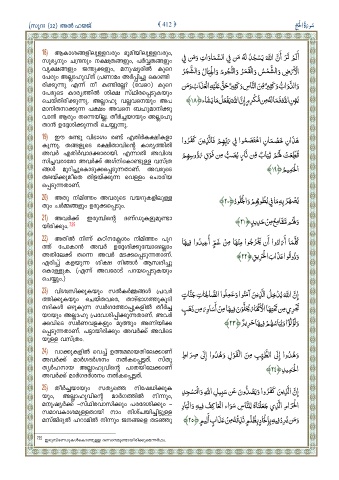 (സൂറഃ (22) അൽ ഹജ്ജ്
﴾ 412 ﴿
سورة الحج
18) ആകാശങ്ങളിലുള്ളവരും ഭൂമിയിലുള്ളവരും,
സൂര്യനും ചന്ദ്രനും നക്ഷത്രങ്ങളും, പർവ്വതങ്ങളും
വൃക്ഷങ്ങളും ജന്തുക്കളും, മനുഷ്യരിൽ കുറെ
പേരും അല്ലാഹുവിന് പ്രണാമം അർപ്പിച്ചു കൊണ്ടി
രിക്കുന്നു എന്ന് നീ കണ്ടില്ലേ? (വേറെ) കുറെ
പേരുടെ കാര്യത്തിൽ ശിക്ഷ സ്ഥിരപ്പെടുകയും
ചെയ്തിരിക്കുന്നു. അല്ലാഹു വല്ലവനെയും അപ
മാനിതനാക്കുന്ന പക്ഷം അവനെ ബഹുമാനിക്കു
വാൻ ആരും തന്നെയില്ല. തീർച്ചയായും അല്ലാഹു
താൻ ഉദ്ദേശിക്കുന്നത് ചെയ്യുന്നു.
أَلَمْ تَرَ أَنَّ اللَّهَ يَسْجُدُ لَهُ مَن فِي السَّمَاوَاتِ وَمَن فِي
الْأَرْضِ وَالشَّمْسُ وَالْقَمَرُ وَالنُّجُومُ وَالْجِبَالُ وَالشَّجَرُ
وَالدَّوَابُّ وَكَثِيرٌ مِّنَ النَّاسِ وَكَثِيرٌ حَقَّ عَلَيْهِ الْعَذَابُ وَمَن
يُهِنِ اللَّهُ فَمَا لَهُ مِن مُّكْرِمٍ إِنَّ اللَّهَ يَفْعَلُ مَا يَشَاءُ ﴿١٨﴾
19) ഈ രണ്ടു വിഭാഗം രണ്ട് എതിർകക്ഷികളാ
കുന്നു. തങ്ങളുടെ രക്ഷിതാവിന്റെ കാര്യത്തിൽ
അവർ എതിർവാദക്കാരായി. എന്നാൽ അവിശ്വ
സിച്ചവരാരോ അവർക്ക് അഗ്നികൊണ്ടുള്ള വസ്ത്ര
ങ്ങൾ മുറിച്ചുകൊടുക്കപ്പെടുന്നതാണ്. അവരുടെ
തലയ്ക്കുമീതെ തിളയ്ക്കുന്ന വെള്ളം ചൊരിയ
പ്പെടുന്നതാണ്.
هَذَانِ خَصْمَانِ اخْتَصَمُوا فِي رَبِّهِمْ فَالَّذِينَ كَفَرُوا
قُطِّعَتْ لَهُمْ ثِيَابٌ مِّن نَّارٍ يُصَبُّ مِن فَوْقِ رُءُوسِهِمُ
الْحَمِيمُ ﴿١٩﴾
20) അതു നിമിത്തം അവരുടെ വയറുകളിലുള്ള
തും ചർമ്മങ്ങളും ഉരുക്കപ്പെടും.
يُصْهَرُ بِهِ مَا فِي بُطُونِهِمْ وَالْجُلُودُ ﴿٢٠﴾
21) അവർക്ക് ഇരുമ്പിന്റെ ദണ്ഡുകളുമുണ്ടാ
യിരിക്കും.
وَلَهُم مَّقَامِعُ مِنْ حَدِيدٍ ﴿٢١﴾
22) അതിൽ നിന്ന് കഠിനക്ലേശം നിമിത്തം പുറ
ത്ത് പോകാൻ അവർ ഉദ്ദേശിക്കുമ്പോഴെല്ലാം
അതിലേക്ക് തന്നെ അവർ മടക്കപ്പെടുന്നതാണ്.
എരിച്ച് കളയുന്ന ശിക്ഷ നിങ്ങൾ ആസ്വദിച്ചു
കൊള്ളുക. (എന്ന് അവരോട് പറയപ്പെടുകയും
ചെയ്യും.)
كُلَّمَا أَرَادُوا أَن يَخْرُجُوا مِنْهَا مِنْ غَمٍّ أُعِيدُوا فِيهَا
وَذُوقُوا عَذَابَ الْحَرِيقِ ﴿٢٢﴾
23) വിശ്വസിക്കുകയും സൽകർമ്മങ്ങൾ പ്രവർ
ത്തിക്കുകയും ചെയ്തവരെ, താഴ്ഭാഗത്തുകൂടി
നദികൾ ഒഴുകുന്ന സ്വർഗത്തോപ്പുകളിൽ തീർച്ച
യായും അല്ലാഹു പ്രവേശിപ്പിക്കുന്നതാണ്. അവർ
ക്കവിടെ സ്വർണവളകളും മുത്തും അണിയിക്ക
പ്പെടുന്നതാണ്. പട്ടായിരിക്കും അവർക്ക് അവിടെ
യുള്ള വസ്ത്രം.
إِنَّ اللَّهَ يُدْخِلُ الَّذِينَ آمَنُوا وَعَمِلُوا الصَّالِحَاتِ جَنَّاتٍ
تَجْرِي مِن تَحْتِهَا الْأَنْهَارُ يُحَلَّوْنَ فِيهَا مِنْ أَسَاوِرَ مِن ذَهَبٍ
وَلُؤْلُؤًا وَلِبَاسُهُمْ فِيهَا حَرِيرٌ ﴿٢٣﴾
24) വാക്കുകളിൽ വെച്ച് ഉത്തമമായതിലേക്കാണ്
അവർക്ക് മാർഗദർശനം നൽകപ്പെട്ടത്. സ്തു
ത്യർഹനായ അല്ലാഹുവിന്റെ പാതയിലേക്കാണ്
അവർക്ക് മാർഗദർശനം നൽകപ്പെട്ടത്.
وَهُدُوا إِلَى الطَّيِّبِ مِنَ الْقَوْلِ وَهُدُوا إِلَى صِرَاطِ
الْحَمِيدِ ﴿٢٤﴾
25) തീർച്ചയായും സത്യത്തെ നിഷേധിക്കുക
യും, അല്ലാഹുവിന്റെ മാർഗത്തിൽ നിന്നും,
മനുഷ്യർക്ക് -സ്ഥിരവാസിക്കും പരദേശിക്കും -
സമാവകാശമുള്ളതായി നാം നിശ്ചയിച്ചിട്ടുള്ള
മസ്ജിദുൽ ഹറാമിൽ നിന്നും ജനങ്ങളെ തടഞ്ഞു
إِنَّ الَّذِينَ كَفَرُوا وَيَصُدُّونَ عَن سَبِيلِ اللَّهِ وَالْمَسْجِدِ
الْحَرَامِ الَّذِي جَعَلْنَاهُ لِلنَّاسِ سَوَاءً الْعَاكِفُ فِيهِ وَالْبَادِ
وَمَن يُرِدْ فِيهِ بِإِلْحَادٍ بِظُلْمٍ نُذِقْهُ مِنْ عَذَابٍ أَلِيمٍ ﴿٢٥﴾